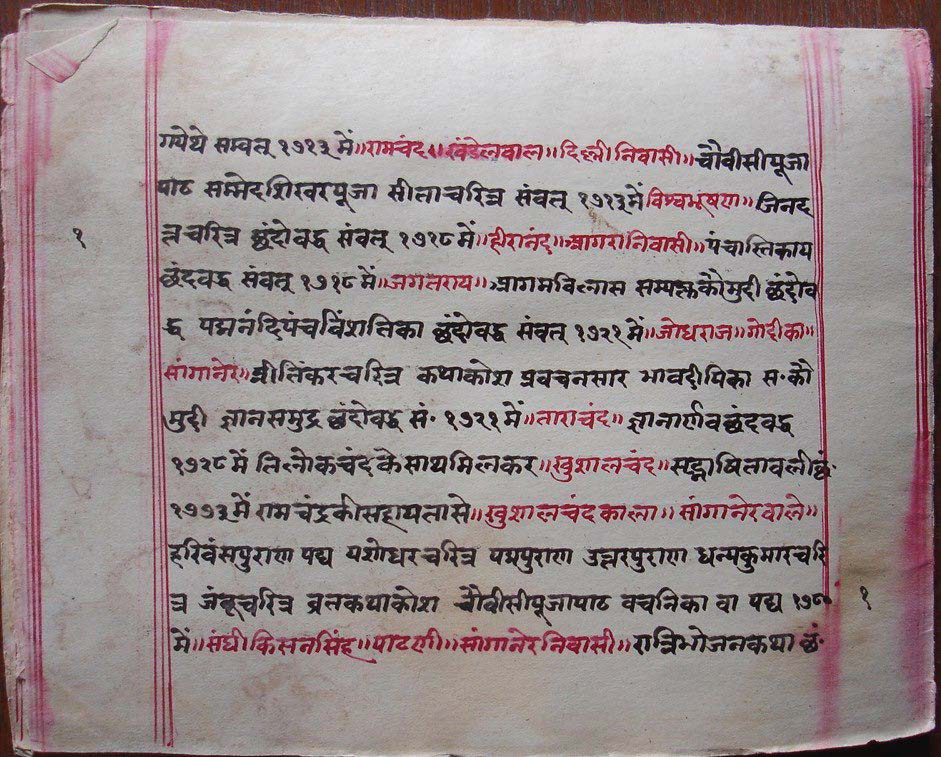 गयेथे सम्वत् १७१३ में॥रामचंद॥खंडेलवाल॥दिल्ली निवासी॥चौवीसीपूजा
पाठ सम्मेदशिखरपूजा सीताचरित्र संवत् १७१३में विश्वभूषण॥जिनद
त्तचरित्र छंदोवद्ध संवत् १७१८ में॥हीरानंद॥आगरानिवासी॥पंचास्तिकाय
१
छंदवद्ध संवत् १७१८ में॥जगतराय॥आगमविलास सम्यक्तकौमुदी छंदोव
द्ध पद्मनंदिपंचविंशतिका छंदोवद्ध संवत् १७२१ में॥जोधराज॥गोदीका॥
सांगानेर॥प्रीतिंकरचरित्र कथाकोश प्रवचनसार भावदीपिका स॰कौ
मुदी ज्ञानसमुद्र छंदोवद्ध सं॰ १७२१ में॥ताराचंद॥ज्ञानार्णव छंदवद्ध
१७२८ में तिलोकचंदकेसाथमिलकर॥खुशालचंद॥सद्भाषितावली छं॰
१७७३ में रामचंद्रकीसहायतासे॥खुशालचंदकाला॥सांगानेरवाले॥
हरिवंसपुराण पद्य यशोधरचरित्र पद्मपुराण उत्तरपुराण धन्यकुमारचरि
त्र जंबूचरित्र व्रतकथाकोश चौवीसीपूजापाठ वचनिका वा पद्य १७८०
१
में॥संघी किसनसिंह॥पाटणी॥सांगानेरनिवासी॥रात्रिभोजनकथा छं॰